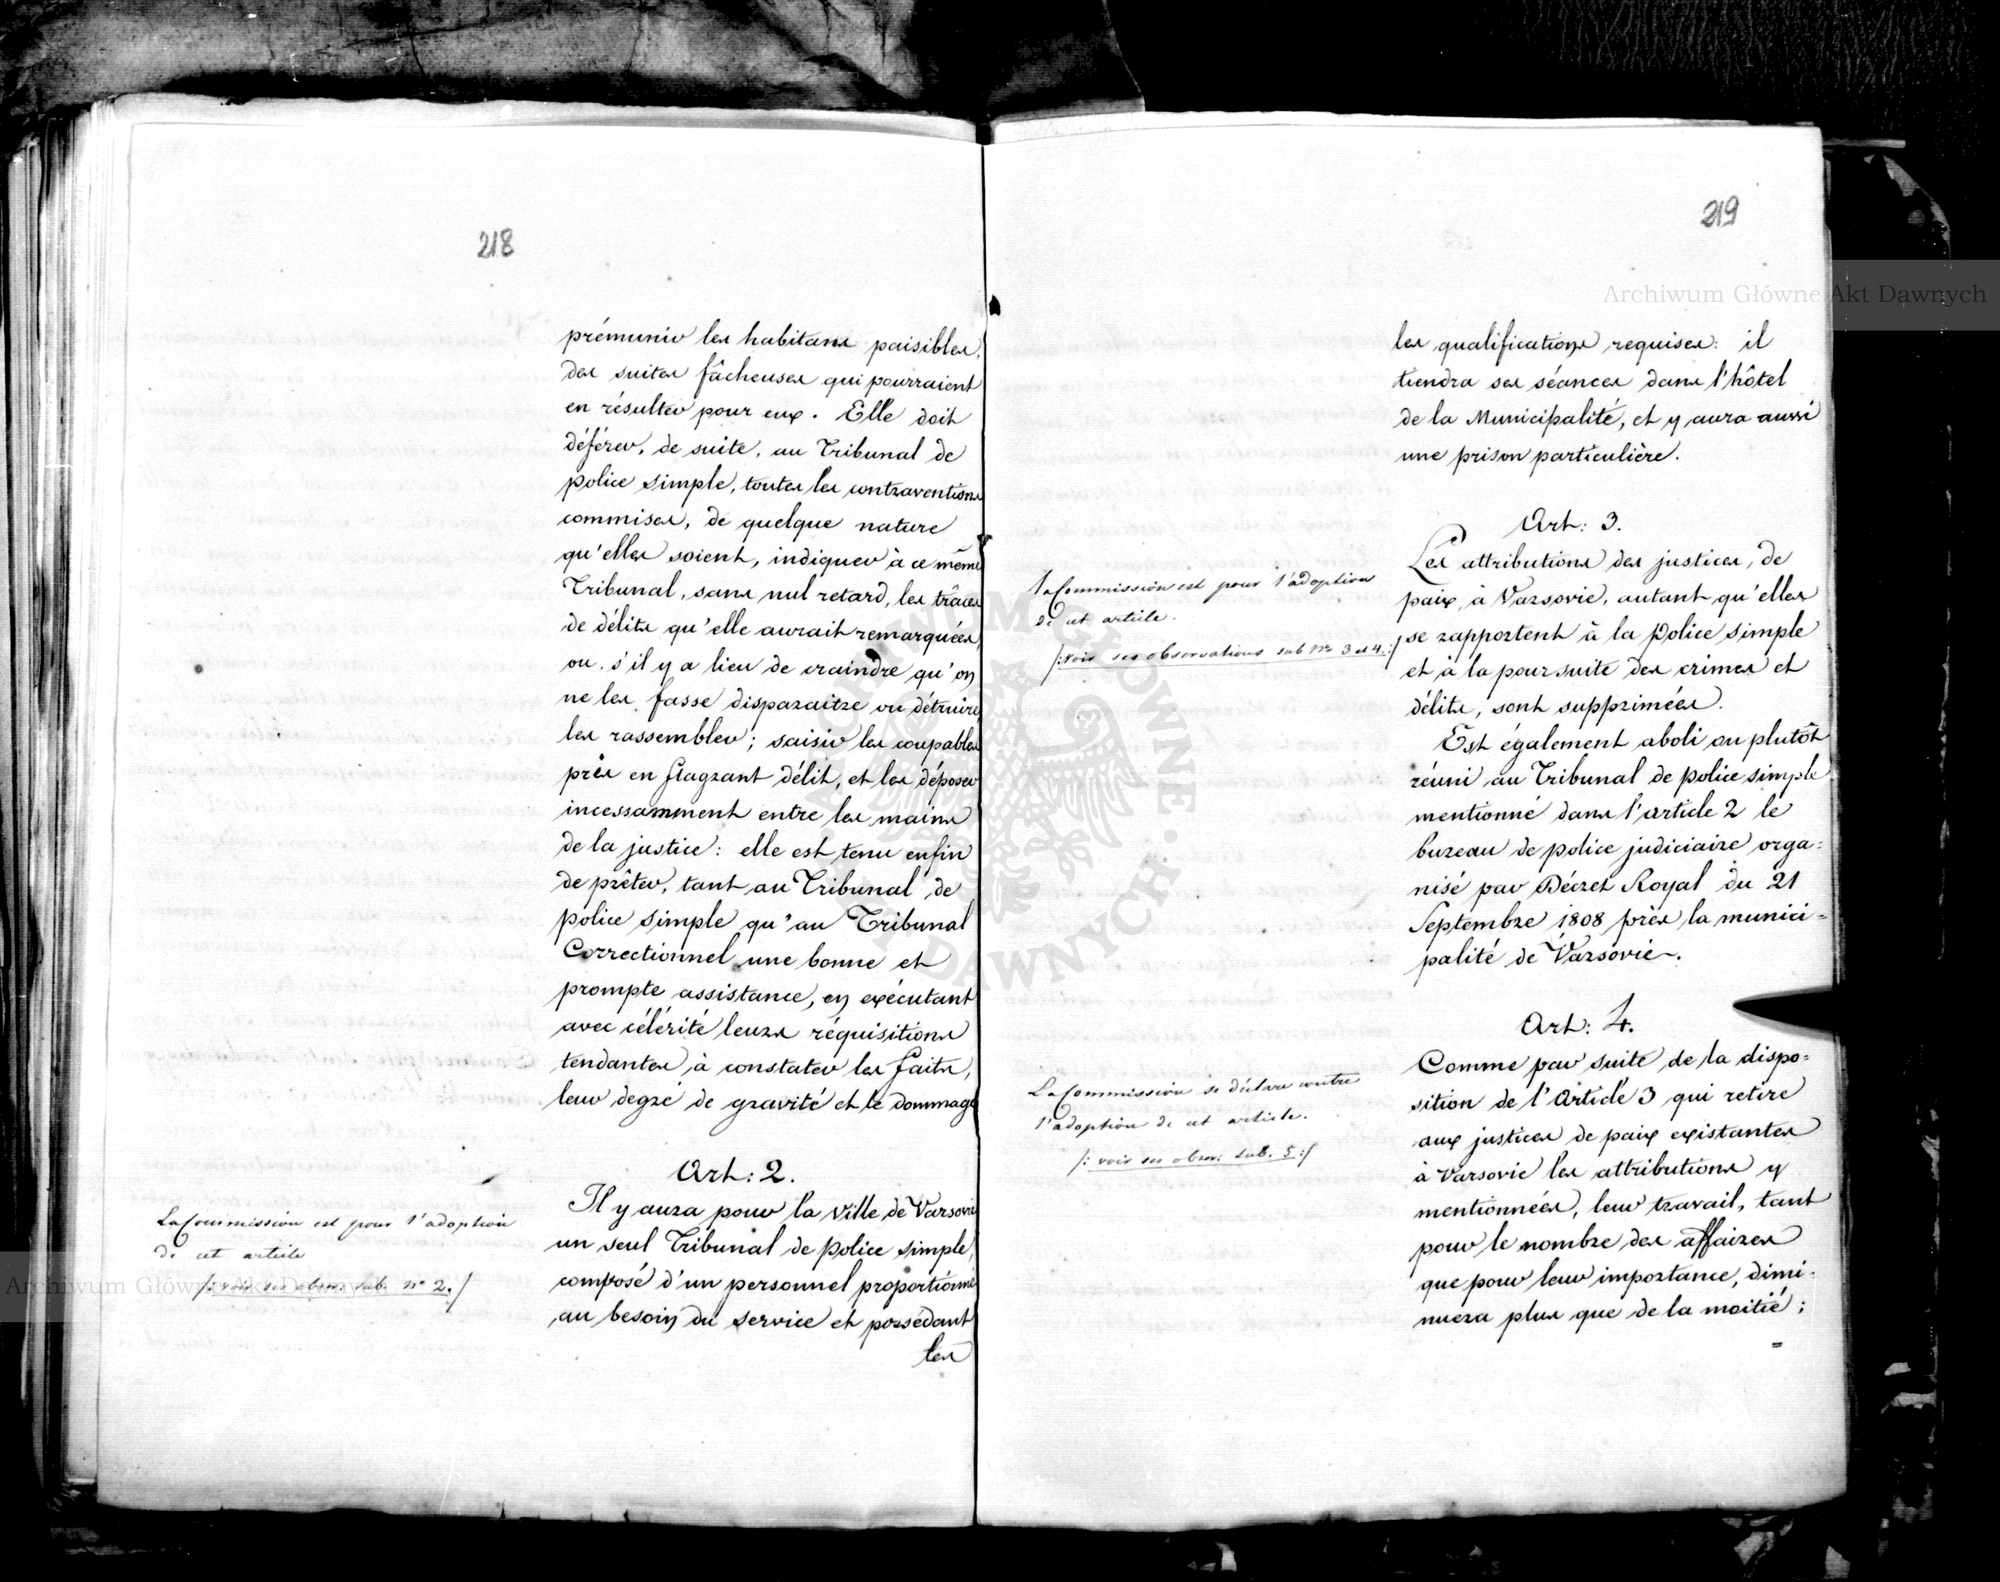 218
prémunir les habitans paisibles,
des suites fâcheuses qui pourraient
en résulter pour eux. Elle doit
déférer, de suite, au Tribunal de
police simple, toutes les contraventions
commises, de quelque nature
qu'elles soient, indiquer à ce même
Tribunal, sans nul retard, les traces
de délits qu'elle aurait remarquées,
ou s'il y a lieu de craindre qu'on
ne les fasse disparaitre ou détruire,
les rassembler; saisir les coupables
pris en flagrant délit, et les déposer
incessamment entre les mains
de la justice: elle est tenu enfin
de prêter, tant au Tribunal de
police simple qu'au Tribunal
Correctionnel une bonne et
prompte assistance, en exécutant
avec célérité leurs réquisitions
tendantes à constater les faits,
leur degré de gravité et le dommage
Art: 2.
Il y aura pour la Ville de Varsovie
un seul Tribunal de police simple,
composé d'un personnel proportionné
au besoin du service et possédant
les
La Commission est pour l'adoption
de cet article
/: voir ses obser: sub. nº 2. :/
219
les qualifications requises: il
tiendra ses séances dans l'hôtel
de la Municipalité, et y aura aussi
une prison particulière.
Art: 3.
Les attributions des justices, de
paix, à Varsovie, autant qu'elles
se rapportent à la Police simple
et à la poursuite des crimes et
délits, sont supprimées.
Est également aboli ou plutôt
réuni au Tribunal de police simple
mentionné dans l'article 2 le
bureau de police judiciaire orga=
nisé par Décret Royal du 21
Septembre 1808 près la munici=
palité de Varsovie.
La Commission est pour l'adoption
de cet article.
/: voir ses observations sub nº 3 et 4. :/
Art: 4.
Comme par suite de la dispo=
sition de l'Article 3 qui retire
aux justices de paix existantes
à Varsovie les attributions y
mentionnées, leur travail, tant
pour le nombre des affaires
que pour leur importance, dimi=
nuera plus que de la moitié;
=
La Commission se déclare contre
l'adoption de cet article.
/: voir ses obser: sub. 5 :/
Archiwum Główne Akt Dawnych
Archiwum Główne Akt Dawnych
ARCHIWUM GŁÓWNE AKT DAWNYCH